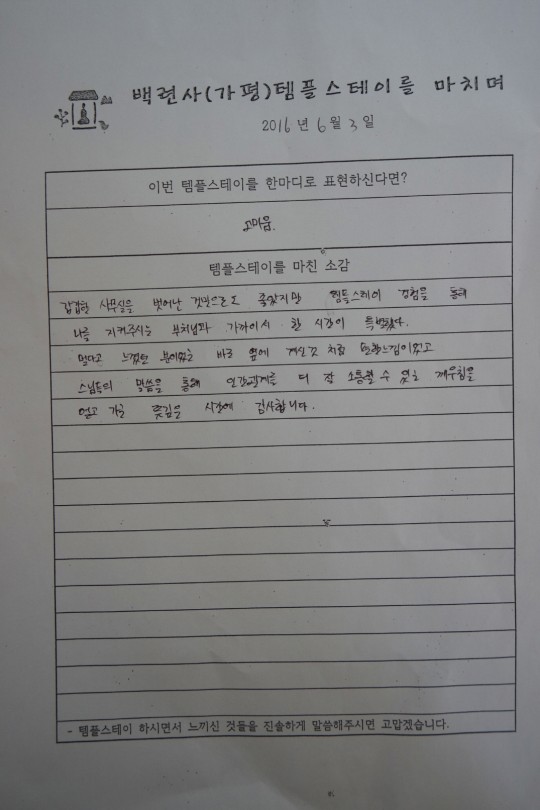 백련사(가평)템플스테이를 마치며
2016년 6월 3일
이번 템플스테이를 한마디로 표현하신다면?
고마움.
템플스테이를 마친 소감
갑갑한 사무실을 벗어난 것만으로도 좋았지만 템플스테이 경험을 통해
나를 지켜주시는 부처님과 가까이서 한 시간이 특별했다.
멀다고 느꼈던 분이었는 바로 옆에 계신것 처럼 느낌이었고
스님들의 말씀을 통해 인간관계를 더 잘 소통할 수 있는 깨우침을
얻고 가는 시간에 감사합니다.
- 템플스테이 하시면서 느끼신 것들을 진솔하게 말씀해주시면 고맙겠습니다.